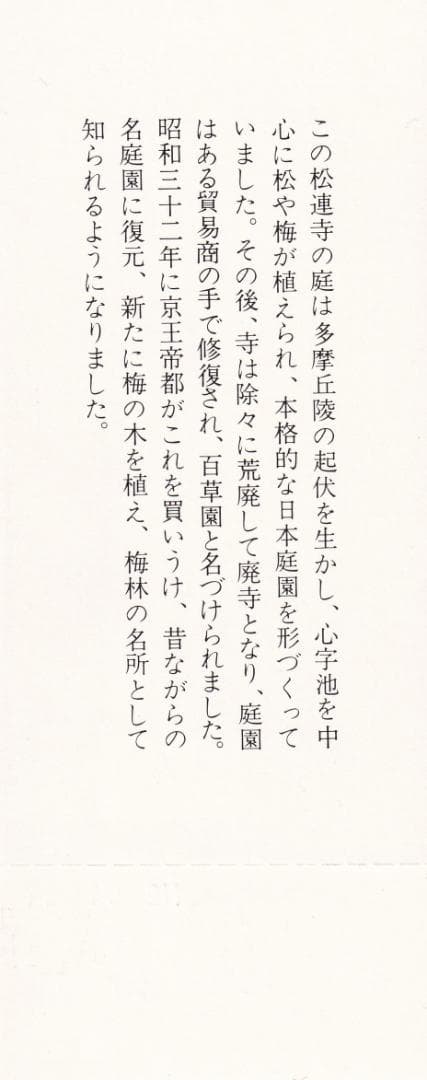 この松連寺の庭は多摩丘陵の起伏を生かし、心字池を中
心に松や梅が植えられ、本格的な日本庭園を形づくって
いました。その後、寺は除々に荒廃して廃寺となり、庭園
はある貿易商の手で修復され、百草園と名づけられました。
昭和三十二年に京王帝都がこれを買いうけ、昔ながらの
名庭園に復元、新たに梅の木を植え、梅林の名所として
知られるようになりました。